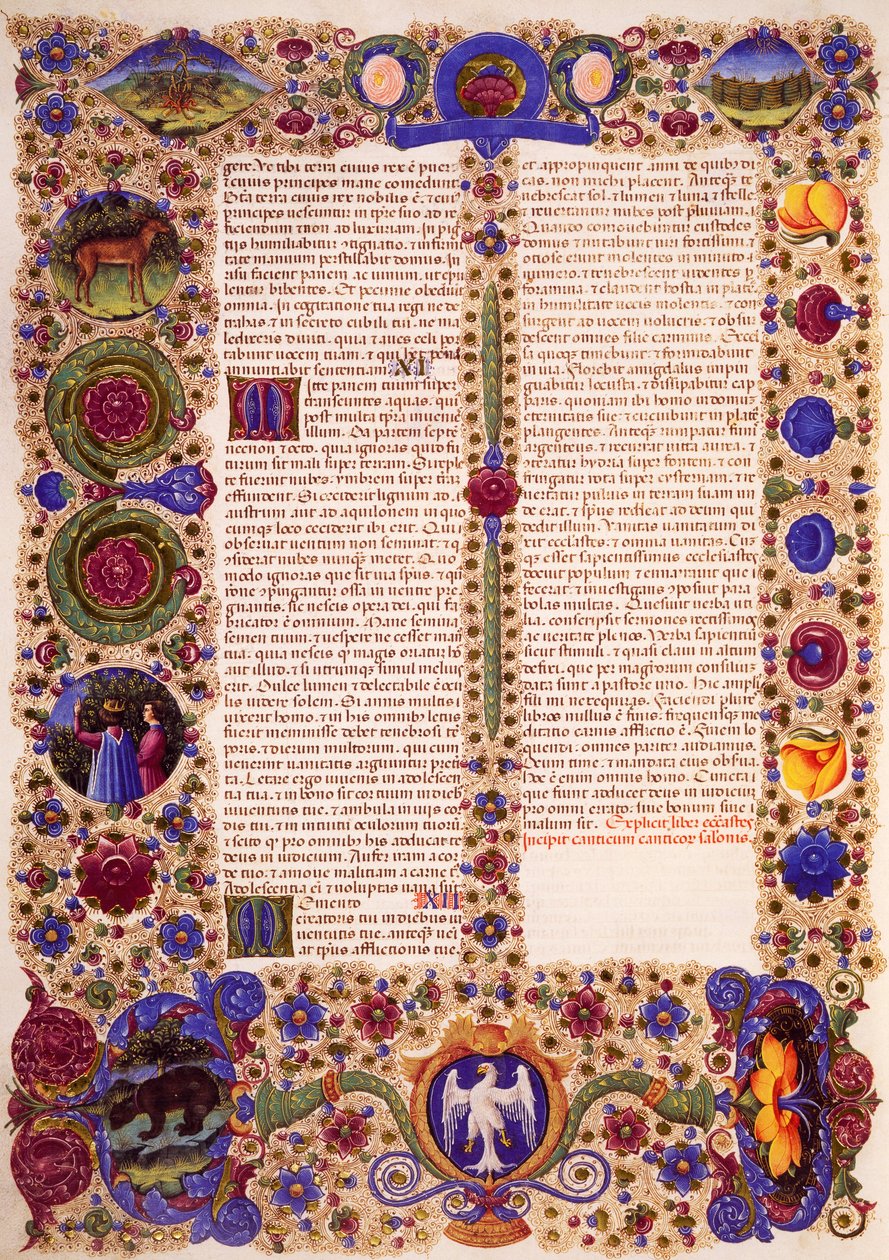 gere. Ve tibi terra cuius rex ē puer
⁊ cuius principes mane comedunt
Bt̄a terra cuius rex nobilis ē. ⁊ cui᾽
principes uescuntur in tp̄re suo ad re
ficiendum ⁊ non ad luxuriam. In pig
tijs humiliabitur ɔtignatio. ⁊ infirmi
tate manuum perstillabit domus. In
risu faciunt panem ac uinum. ut epu
lentur bibentes. Et pecunie obediunt
omnia. In cogitatione tua regi ne de
trahas. ⁊ in secreto cubili tui. ne ma
ledixeris diuiti. quia ⁊ aues celi por
tabunt uocem tuam. ⁊ qui
nuntiabit sententiam. XI
Mitte panem tuum super
transeuntes aquas. quia
post multa tp̄ra inuenies
illum. Da partem septē
necnon ⁊ octo. quia ignoras quid fu
turum sit mali super terram. Si reple
te fuerint nubes. ymbrem super t̄rā
effundent. Si ceciderit lignum ad
austrum aut ad aquilonem in quo
cumq; loco ceciderit ibi erit. Qui
obseruat uentum non seminat. ⁊ q
ɔsiderat nubes nunq̄ metet. Quo
modo ignoras que sit uia sp̄us. ⁊ q
rone ɔpingantur ossa in uentre pre
gnantis. sic nescis opera dei. qui fa
bricator ē omnium. Mane semina
semen tuum. ⁊ uespere ne cesset man᾽
tua. quia nescis qd̄ magis oriatur h
aut illud. ⁊ si utrumq; simul melius
erit. Dulce lumen ⁊ delectabile ē ocu
lis uidere solem. Si annis multis
uixerit homo. ⁊ in his omnib; letus
fuerit meminisse debet tenebrosi tē
poris. ⁊ dierum multorum. qui cum
uenerint uanitatis arguentur preri
ta. Letare ergo iuuenis in adolescen
tia tua. ⁊ in bono sit cor tuum in dieb;
iuuentutis tue. ⁊ ambula in uijs cor
dis tui. ⁊ in intuitu oculorum tuorū
⁊ scito q̄ pro omnib; his adducat te
deus in iudicium. Aufer iram a cor
de tuo. ⁊ amoue malitiam a carne t
Adolescentia ei ⁊ uoluptas uana sūt
Memento XII
creatoris tui in diebus iu
uentutis tue. anteq̄ uei
at tp̄us afflictionis tue.
et appropinquent anni de quib; di
cas. non michi placent. Anteq̄ te
nebrescat sol. ⁊ lumen ⁊ luna ⁊ stelle.
⁊ reuertantur nubes post pluuiam.
Quando comouebuntur custodes
domus ⁊ nutabunt uiri fortissimi ⁊
otiose erunt molentes in minuto
numero. ⁊ tenebrescent uidentes p
foramina. ⁊ claudent hostia in plate
in humilitate uocis molentis. ⁊ con
surgent ad uocem uolucris. ⁊ obsur
descent omnes filie carminis. Excel
sa quoq; timebunt ⁊ formidabunt
in uia. Florebit amigdalus impin
guabitur locusta. ⁊ dissipabitur cap
paris. quoniam ibi homo in domum
eternitatis sue. ⁊ circuibunt in plate
plangentes. Anteq̄ rumpatur funi
argenteus. ⁊ recurrat uitta aurea. ⁊
ɔteratur hydria super fontem. ⁊ con
fringatur rota super cysternam. ⁊ re
uertatur puluis in terram suam un
de erat. ⁊ sp̄us redeat ad deum qui
dedit illum. Vanitas uanitatum di
xit ecclesiastes. ⁊ omnia uanitas. Cū
q; esset sapientissimus ecclesiastes
docuit populum ⁊ enarrauit que
fecerat. ⁊ inuestigans ɔposuit para
bolas multas. Quesiuit uerba uti
lia. conscripsit sermones rectissimos
ac ueritate plenos. Verba sapientū
sicut stimuli. ⁊ quasi claui in altum
defixi. que per magistrorum consilium
data sunt a pastore uno. His ampli᾽
fili mi ne requiras. Faciendi plures
libros nullus ē finis. frequensq; me
ditatio carnis afflictio ē. Finem lo
quendi. omnes pariter audiamus.
Deum time. ⁊ mandata eius obserua
hoc ē enim omnis homo. Cuncta
que fiunt adducet deus in iudicium
pro omni errato. siue bonum siue
malum sit. Explicit liber eccl̄astes
Incipit canticum canticor salonis.